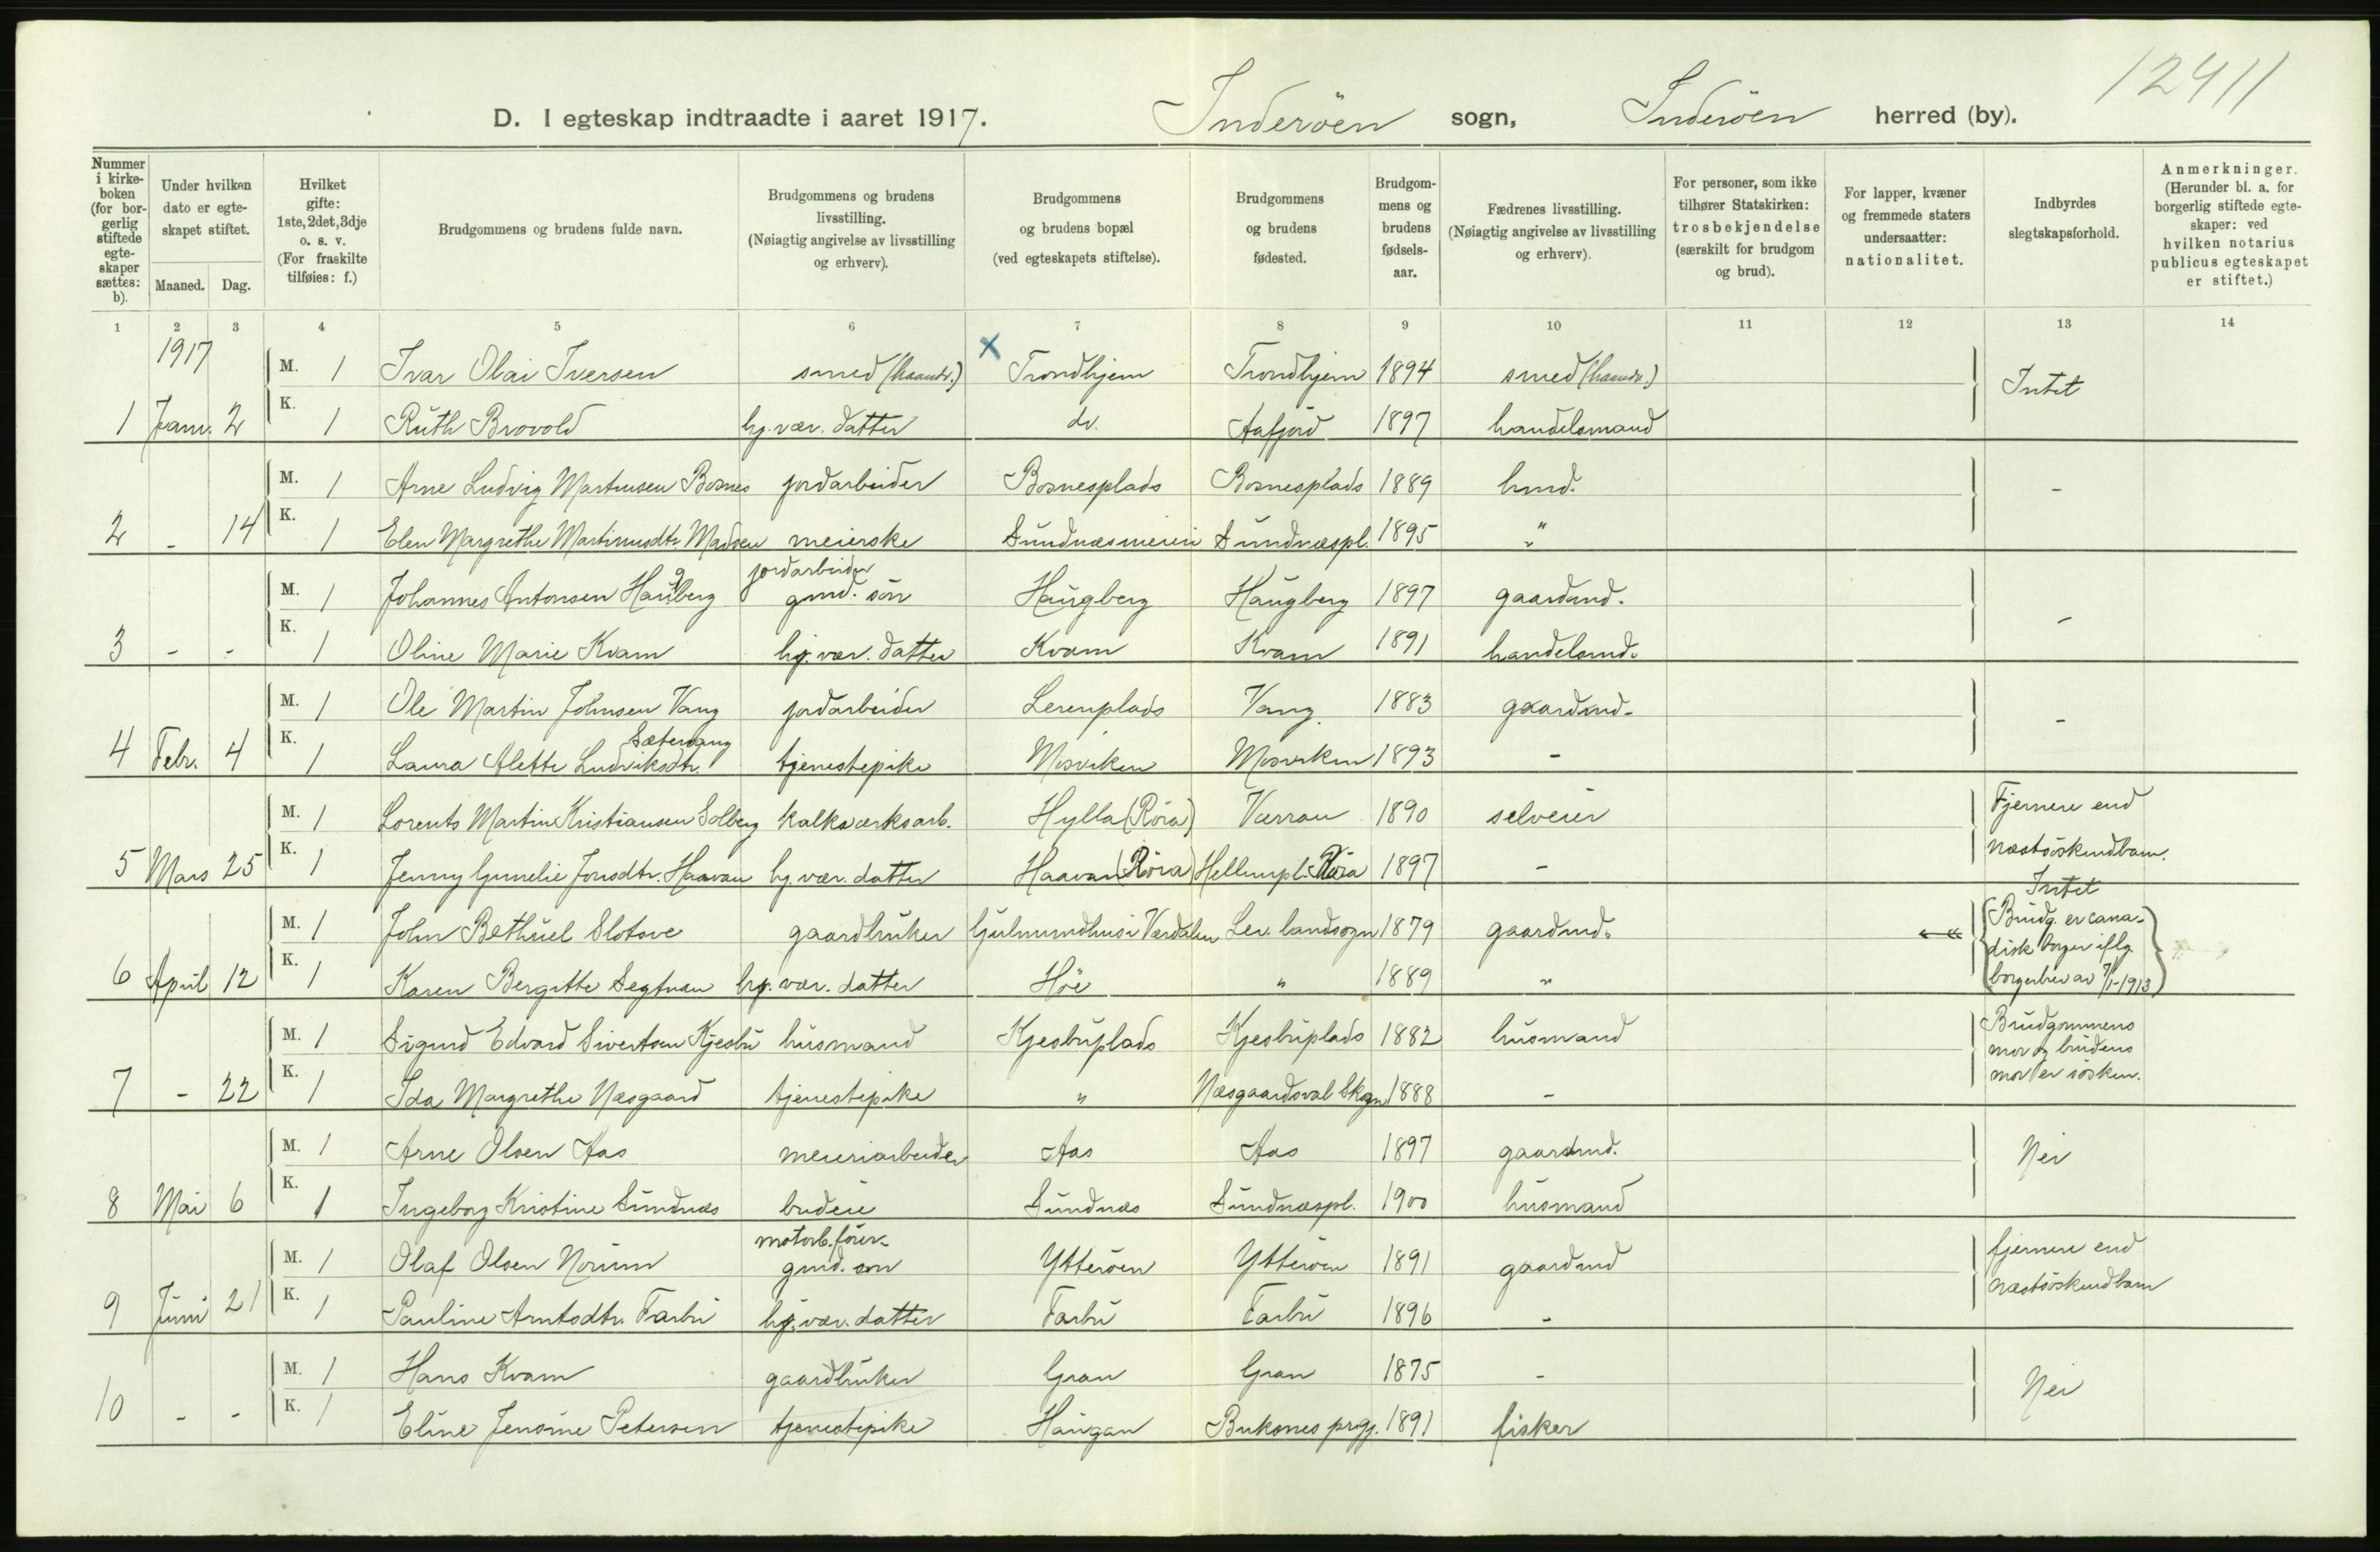 12411
D. I egteskap indtraadte i aaret 1917. Inderöen sogn, Inderöen herred (by).
Nummer i kirke-boken (for bor-gerlig stiftede egte-skaper sættes: b).
Under hvilken dato er egte-skapet stiftet.
Maaned. Dag.
Hvilket gifte: 1ste, 2det, 3dje o. s. v. (For fraskilte tilføies: f.)
Brudgommens og brudens fulde navn.
Brudgommens og brudens livsstilling. (Nøiagtig angivelse av livsstilling og erhverv).
Brudgommens og brudens bopæl (ved egteskapets stiftelse).
Brudgommens og brudens fødested.
Brudgom-mens og brudens fødsels-aar.
Fædrenes livsstilling. (Nøiagtig angivelse av livsstilling og erhverv).
For personer, som ikke tilhører Statskirken: trosbekjendelse (særskilt for brudgom og brud).
For lapper, kvæner og fremmede staters undersaatter: nationalitet.
Indbyrdes slegtskapsforhold.
Anmerkninger. (Herunder bl. a. for borgerlig stiftede egte-skaper: ved hvilken notarius publicus egteskapet er stiftet.)
1 2 3 4 5 6 7 8 9 10 11 12 13 14
1917
M. 1 Ivar Olai Iversen smed (haandv.) x Trondhjem Trondhjem 1894 smed (haandv.) Intet
1 Janr. 2 K. 1 Ruth Brovold hj. vær. datter do. Aafjord 1897 handelsmand
M. 1 Arne Ludvig Martinusen Bosnes jordarbeider Bosnesplads Bosnesplads 1889 husmd. -
2 - 14 K. 1 Elen Margrethe Martinusdtr. Madsen meierske Sundnæsmeieri Sundnæspl. 1895 "
jordarbeider
M. 1 Johannes Antonsen Haugberg gmd. sön Haugberg Haugberg 1897 gaardmd. -
3 - - K. 1 Oline Marie Kvam hj. vær. datter Kvam Kvam 1891 handelsmd.
M. 1 Ole Martin Johnsen Vang jordarbeider Lerenplads Vang 1883 gaardmd. -
Sætervang
4 Febr. 4 K. 1 Laura Alette Ludviksdtr. tjenestepike Mosviken Mosviken 1893 -
M. 1 Lorents Martin Kristiansen Solberg kalkværksarb. Hylla (Röra) Værran 1890 selveier Fjernere end
næstsöskendbarn.
5 Mars 25 K. 1 Jenny Gunelie Jonsdtr. Haavan hj. vær. datter Haavan (Röra) Hellempl. Röra 1897 -
Intet
M. 1 John Bethuel Slotsve gaardbruker Gjulmundhus i Værdalen Lev. landsogn 1879 gaardmd. (Brudg. er cana-
disk borger iflg.
6 April 12 K. 1 Karen Bergitte Segtnan hj. vær. datter Höe " 1889 " borgerbrev av 7/1-1913)
M. 1 Sigurd Edvard Sivertsen Kjesbu husmand Kjesbuplads Kjesbuplads 1882 husmand Brudgommens
mor og brudens
mor er sösken.
7 - 22 K. 1 Ida Margrethe Næsgaard tjenestepike " Næsgaardsval Skogn 1888 -
M. 1 Arne Olsen Aas meieriarbeider Aas Aas 1897 gaardmd. Nei
8 Mai 6 K. 1 Ingeborg Kristine Sundnæs budeie Sundnæs Sundnæspl. 1900 husmand
motorb.förer
M. 1 Olaf Olsen Norum gmd. sön Ytteröen Ytteröen 1891 gaardmd fjernere end
næstsöskendbarn
9 Juni 21 K. 1 Pauline Arntsdtr. Farbu hj. vær. datter Farbu Farbu 1896 -
M. 1 Hans Kvam gaardbruker Gran Gran 1875 - Nei
10 - - K. 1 Eline Jensine Petersen tjenestepike Haugan Buksnes prgj. 1891 fisker